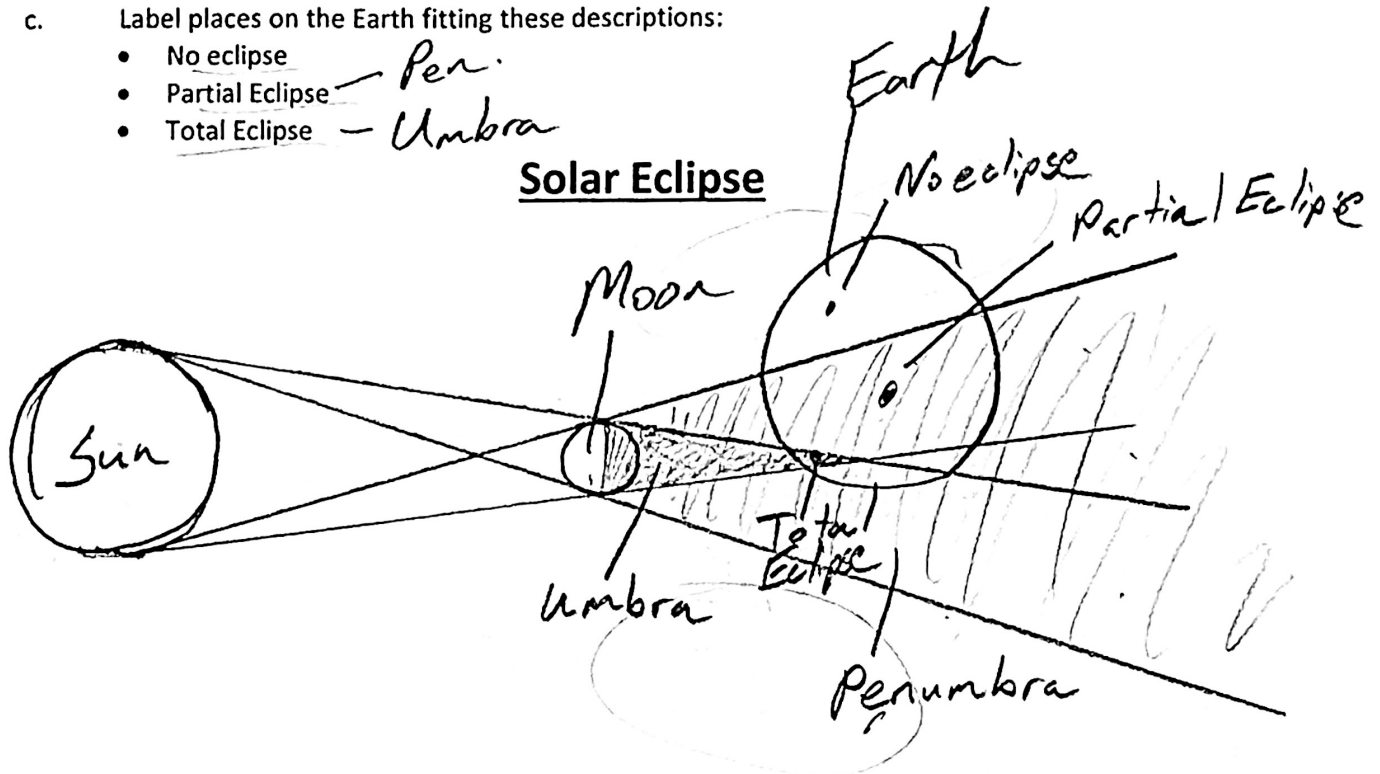 c. Label places on the Earth fitting these descriptions:
• No eclipse
• Partial Eclipse – Pen.
• Total Eclipse – Umbra
Solar Eclipse
Earth
No eclipse
Partial Eclipse
Moon
Sun
Total
Eclipse
Umbra
Penumbra